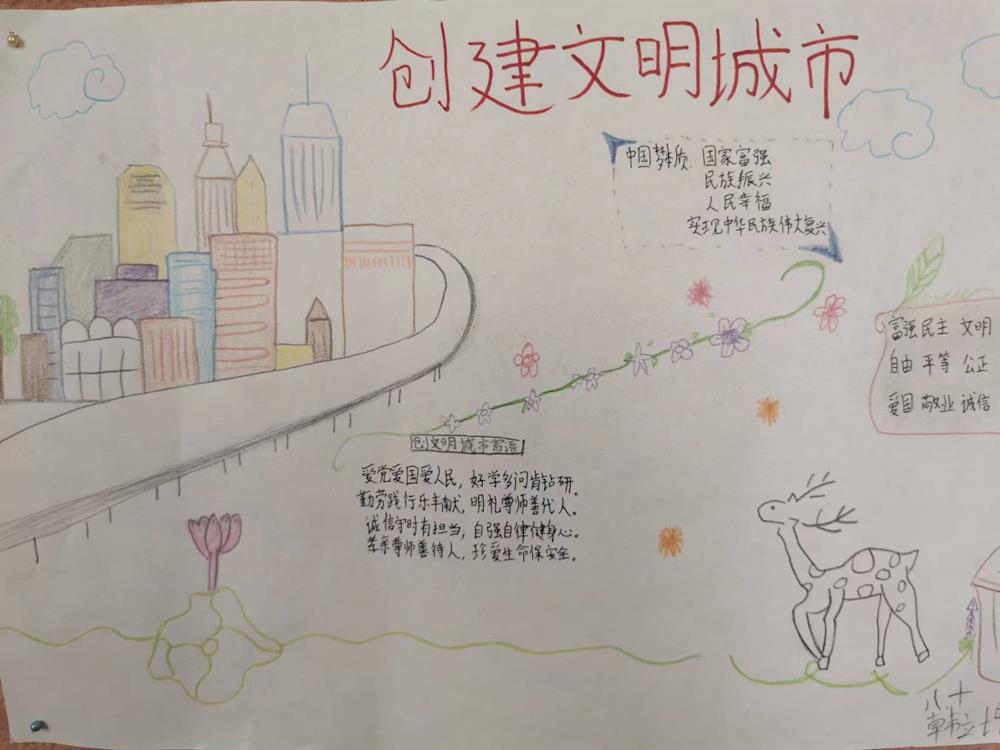 创建文明城市
中国梦本质 国家富强
民族振兴
人民幸福
实现中华民族伟大复兴
富强民主 文明
自由 平等 公正
爱国 敬业 诚信
创文明城市寄语
爱党爱国爱人民，好学多问肯钻研。
勤劳践行乐丰献，明礼尊师善代人。
诚信守时有担当，自强自律健身心。
孝亲尊师善待人，珍爱生命保安全。
八十
韩立